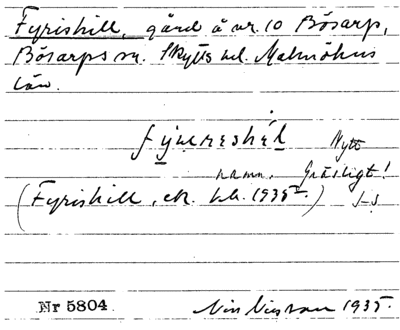 Fyrishill, gård å nr. 10 Bösarp,
Bösarps sn. Skytts hd. Malmöhus
län.
Nytt
namn. Gräsligt!
(Fyrishill, ek. kb. 1935.) S-S
Nr 5804. Nils Nilsson 1935.